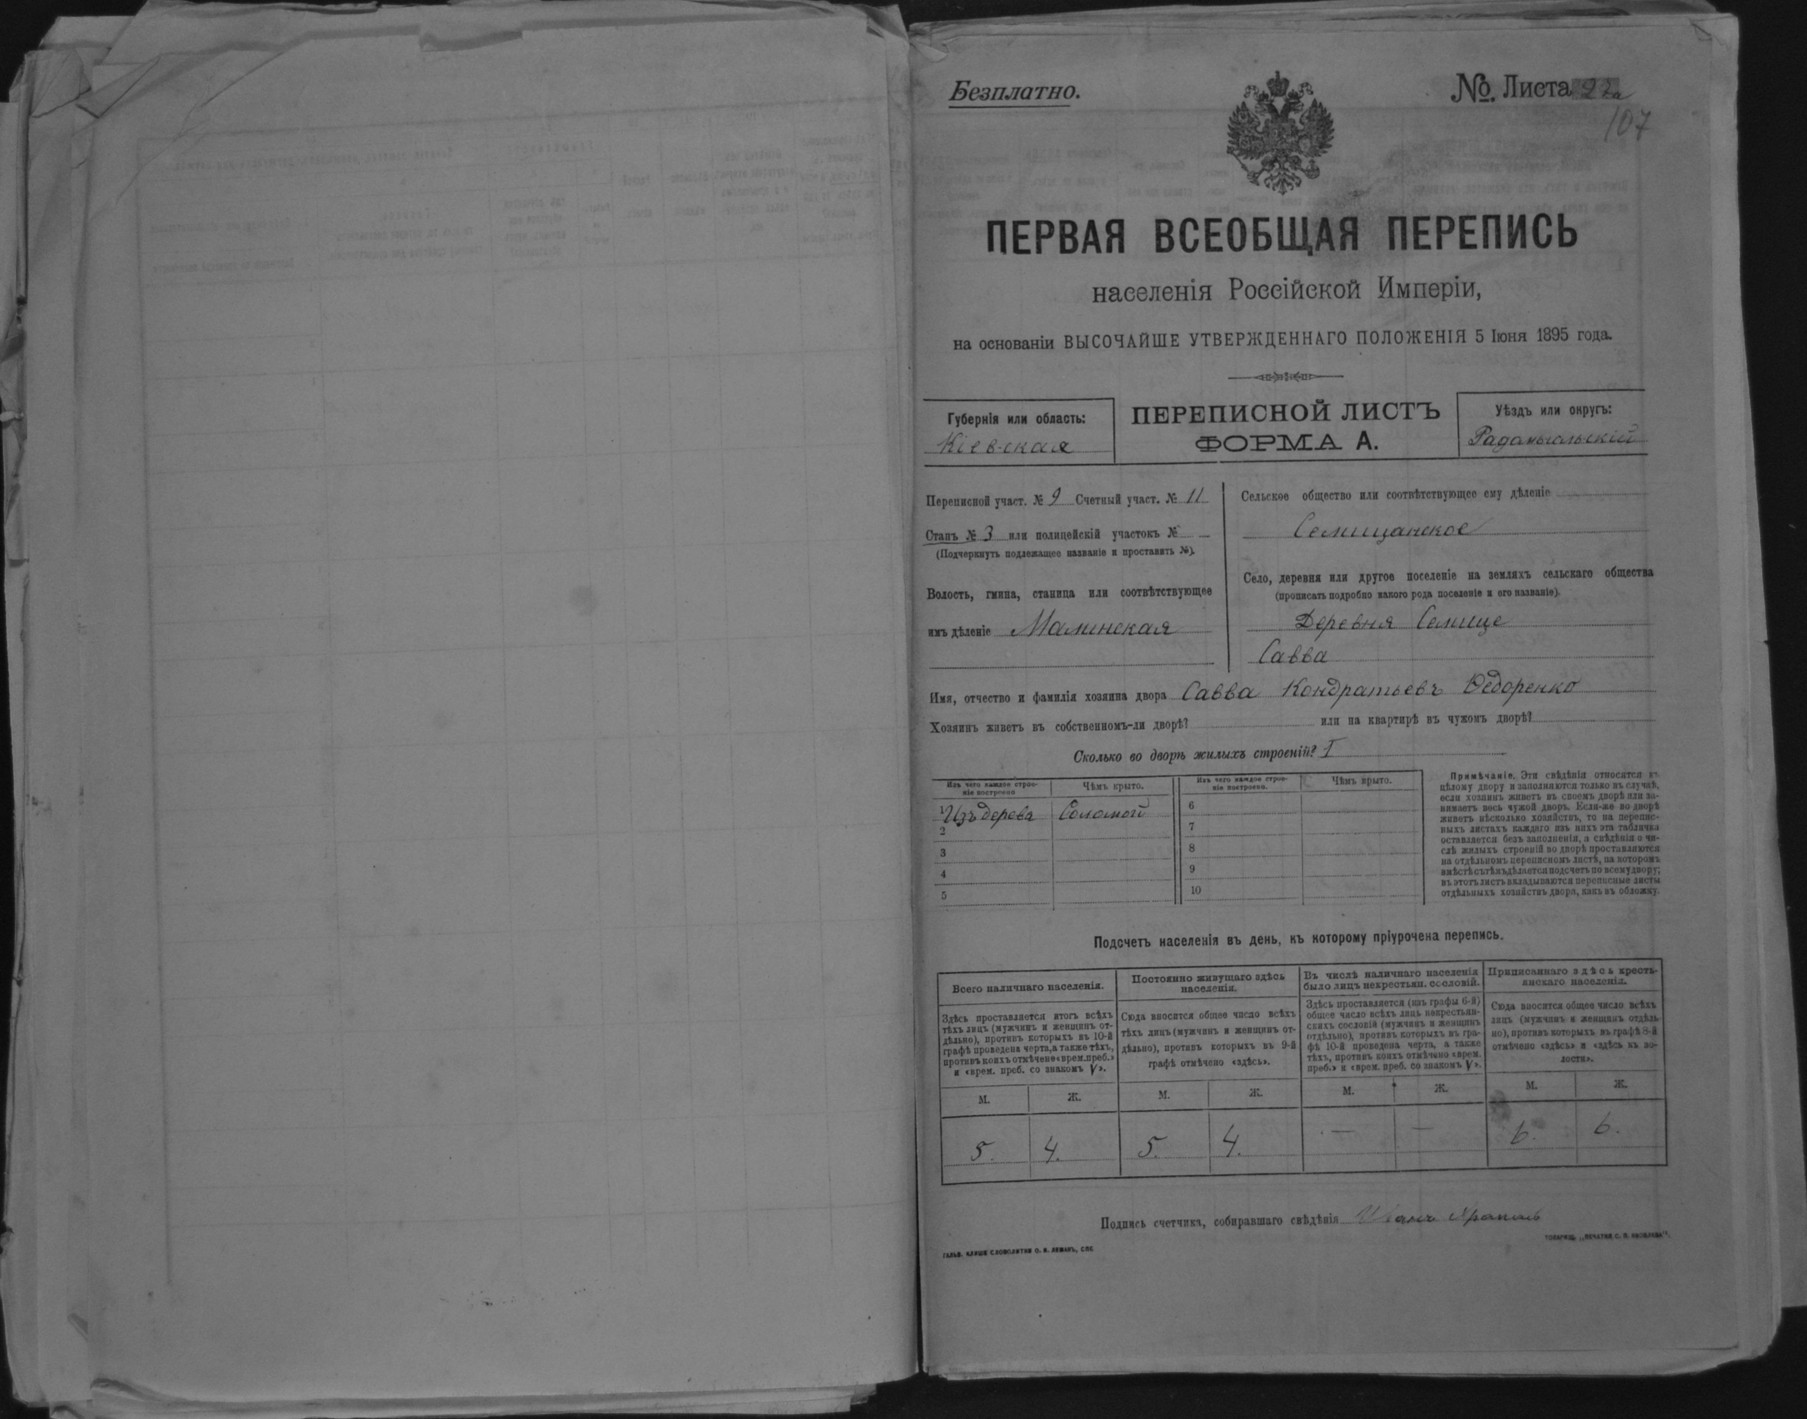 Безплатно.
№. Листа 22а
107
ПЕРВАЯ ВСЕОБЩАЯ ПЕРЕПИСЬ
населенія Россійской Имперіи,
на основаніи ВЫСОЧАЙШЕ УТВЕРЖДЕННАГО ПОЛОЖЕНІЯ 5 Іюня 1895 года.
Губернія или область:
Кіевская
ПЕРЕПИСНОЙ ЛИСТЪ
ФОРМА А.
Уѣздъ или округъ:
Радомысльскій
Переписной участ. № 9 Счетный участ. № 11
Станъ № 3 или полицейскій участокъ № —
(Подчеркнуть подлежащее названіе и проставить №).
Волость, гмина, станица или соотвѣтствующее
имъ дѣленіе Малинская
Сельское общество или соотвѣтствующее ему дѣленіе
Селищанское
Село, деревня или другое поселеніе на земляхъ сельскаго общества
(прописать подробно какого рода поселеніе и его названіе).
Деревня Селище
Савва
Имя, отчество и фамилія хозяина двора Савва Кондратьевъ Ѳедоренко
Хозяинъ живетъ въ собственномъ-ли дворѣ? или на квартирѣ въ чужомъ дворѣ?
Сколько во дворѣ жилыхъ строеній? I
Изъ чего каждое строе-
ніе построено
Чѣмъ крыто.
Изъ чего каждое строе-
ніе построено.
Чѣмъ крыто.
1 Изъ дерева Соломой
2
3
4
5
6
7
8
9
10
Примѣчаніе. Эти свѣдѣнія относятся къ
цѣлому двору и заполняются только въ случаѣ,
если хозяинъ живетъ въ своемъ дворѣ или за-
нимаетъ весь чужой дворъ. Если-же во дворѣ
живетъ нѣсколько хозяйствъ, то на перепис-
ныхъ листахъ каждаго изъ нихъ эта табличка
оставляется безъ заполненія, а свѣдѣнія о чи-
слѣ жилыхъ строеній во дворѣ проставляются
на отдѣльномъ переписномъ листѣ, на которомъ
вмѣстѣ съ тѣмъ дѣлается подсчетъ по всему двору;
въ этотъ листъ вкладываются переписные листы
отдѣльныхъ хозяйствъ двора, какъ въ обложку.
Подсчетъ населенія въ день, къ которому пріурочена перепись.
Всего наличнаго населенія.
Здѣсь проставляется итогъ всѣхъ
тѣхъ лицъ (мужчинъ и женщинъ от-
дѣльно), противъ которыхъ въ 10-й
графѣ проведена черта, а также тѣхъ,
противъ коихъ отмѣчено «врем. преб.»
и «врем. преб. со знакомъ V».
Постоянно живущаго здѣсь
населенія.
Сюда вносится общее число всѣхъ
тѣхъ лицъ (мужчинъ и женщинъ от-
дѣльно), противъ которыхъ въ 9-й
графѣ отмѣчено «здѣсь».
Въ числѣ наличнаго населенія
было лицъ некрестьян. сословій.
Здѣсь проставляется (изъ графы 6-й)
общее число всѣхъ лицъ некрестьян-
скихъ сословій (мужчинъ и женщинъ
отдѣльно), противъ которыхъ въ гра-
фѣ 10-й проведена черта, а также
тѣхъ, противъ коихъ отмѣчено «врем.
преб.» и «врем. преб. со знакомъ V».
Приписаннаго здѣсь кресть-
янскаго населенія.
Сюда вносится общее число всѣхъ
лицъ (мужчинъ и женщинъ отдѣль-
но), противъ которыхъ въ графѣ 8-й
отмѣчено «здѣсь» и «здѣсь въ во-
лости».
М. Ж. М. Ж. М. Ж. М. Ж.
5. 4. 5. 4. — — 6. 6.
Подпись счетчика, собиравшаго свѣдѣнія Иванъ
ГАЛЬВ. КЛИШЕ СЛОВОЛИТНИ О. И. ЛЕМАНЪ, СПБ.
ТОВАРИЩ. „ПЕЧАТНЯ С. П. ЯКОВЛЕВА".